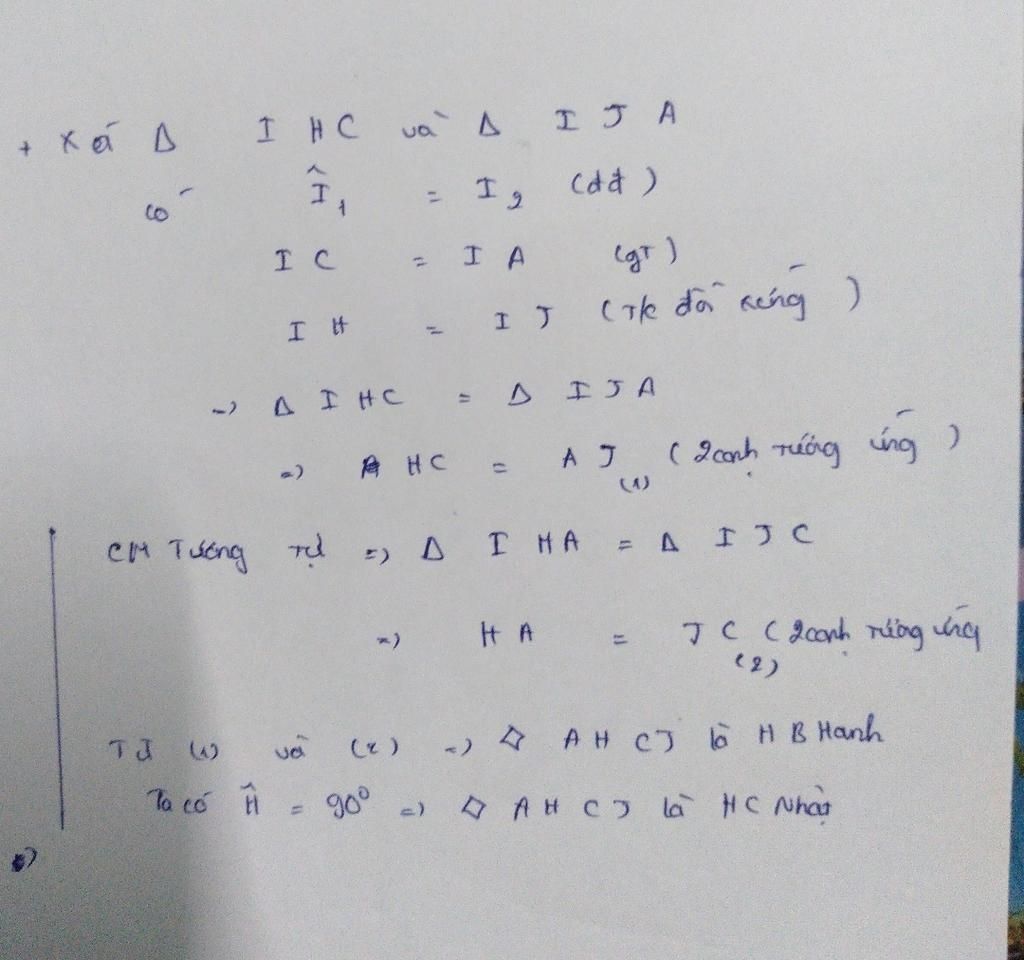 + Xét Δ IHC và Δ IJA
có Î₁ = I₂ (dđ)
IC = IA (gT)
IH = IJ (T/c đối xứng)
=> Δ IHC = Δ IJA
=> HC = AJ (2 cạnh tướng ứng)
(1)
CM Tương tự => Δ IHA = Δ IJC
=> HA = JC (2 cạnh tướng ứng
(2)
Từ (1) và (2) => ◇ AHCJ là HB Hanh
Ta có Ĥ = 90⁰ => ◇ AHCJ là HC Nhật